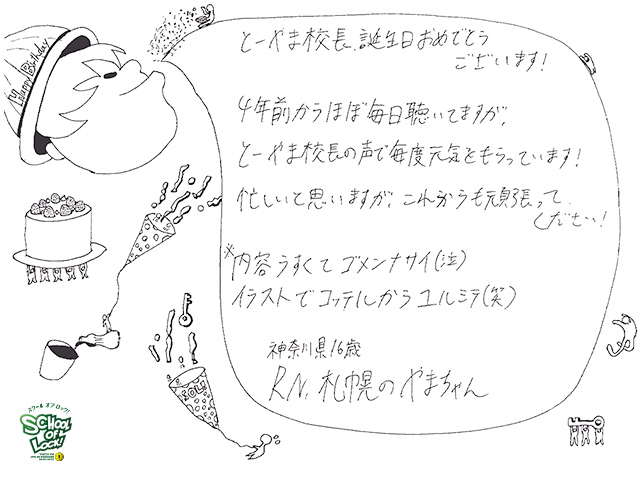 Happy Birthday
とーやま校長、誕生日おめでとう
ございます!
4年前からほぼ毎日聴いてますが、
とーやま校長の声で毎度元気をもらっています!
忙しいと思いますが、これからも頑張って
ください!
※内容うすくてゴメンナサイ(泣)
イラストでコッテルからユルシテ(笑)
神奈川県16歳
RN.札幌のやまちゃん
SOL
スクール オブ ロック!
SCHOOL
OF
LOCK!